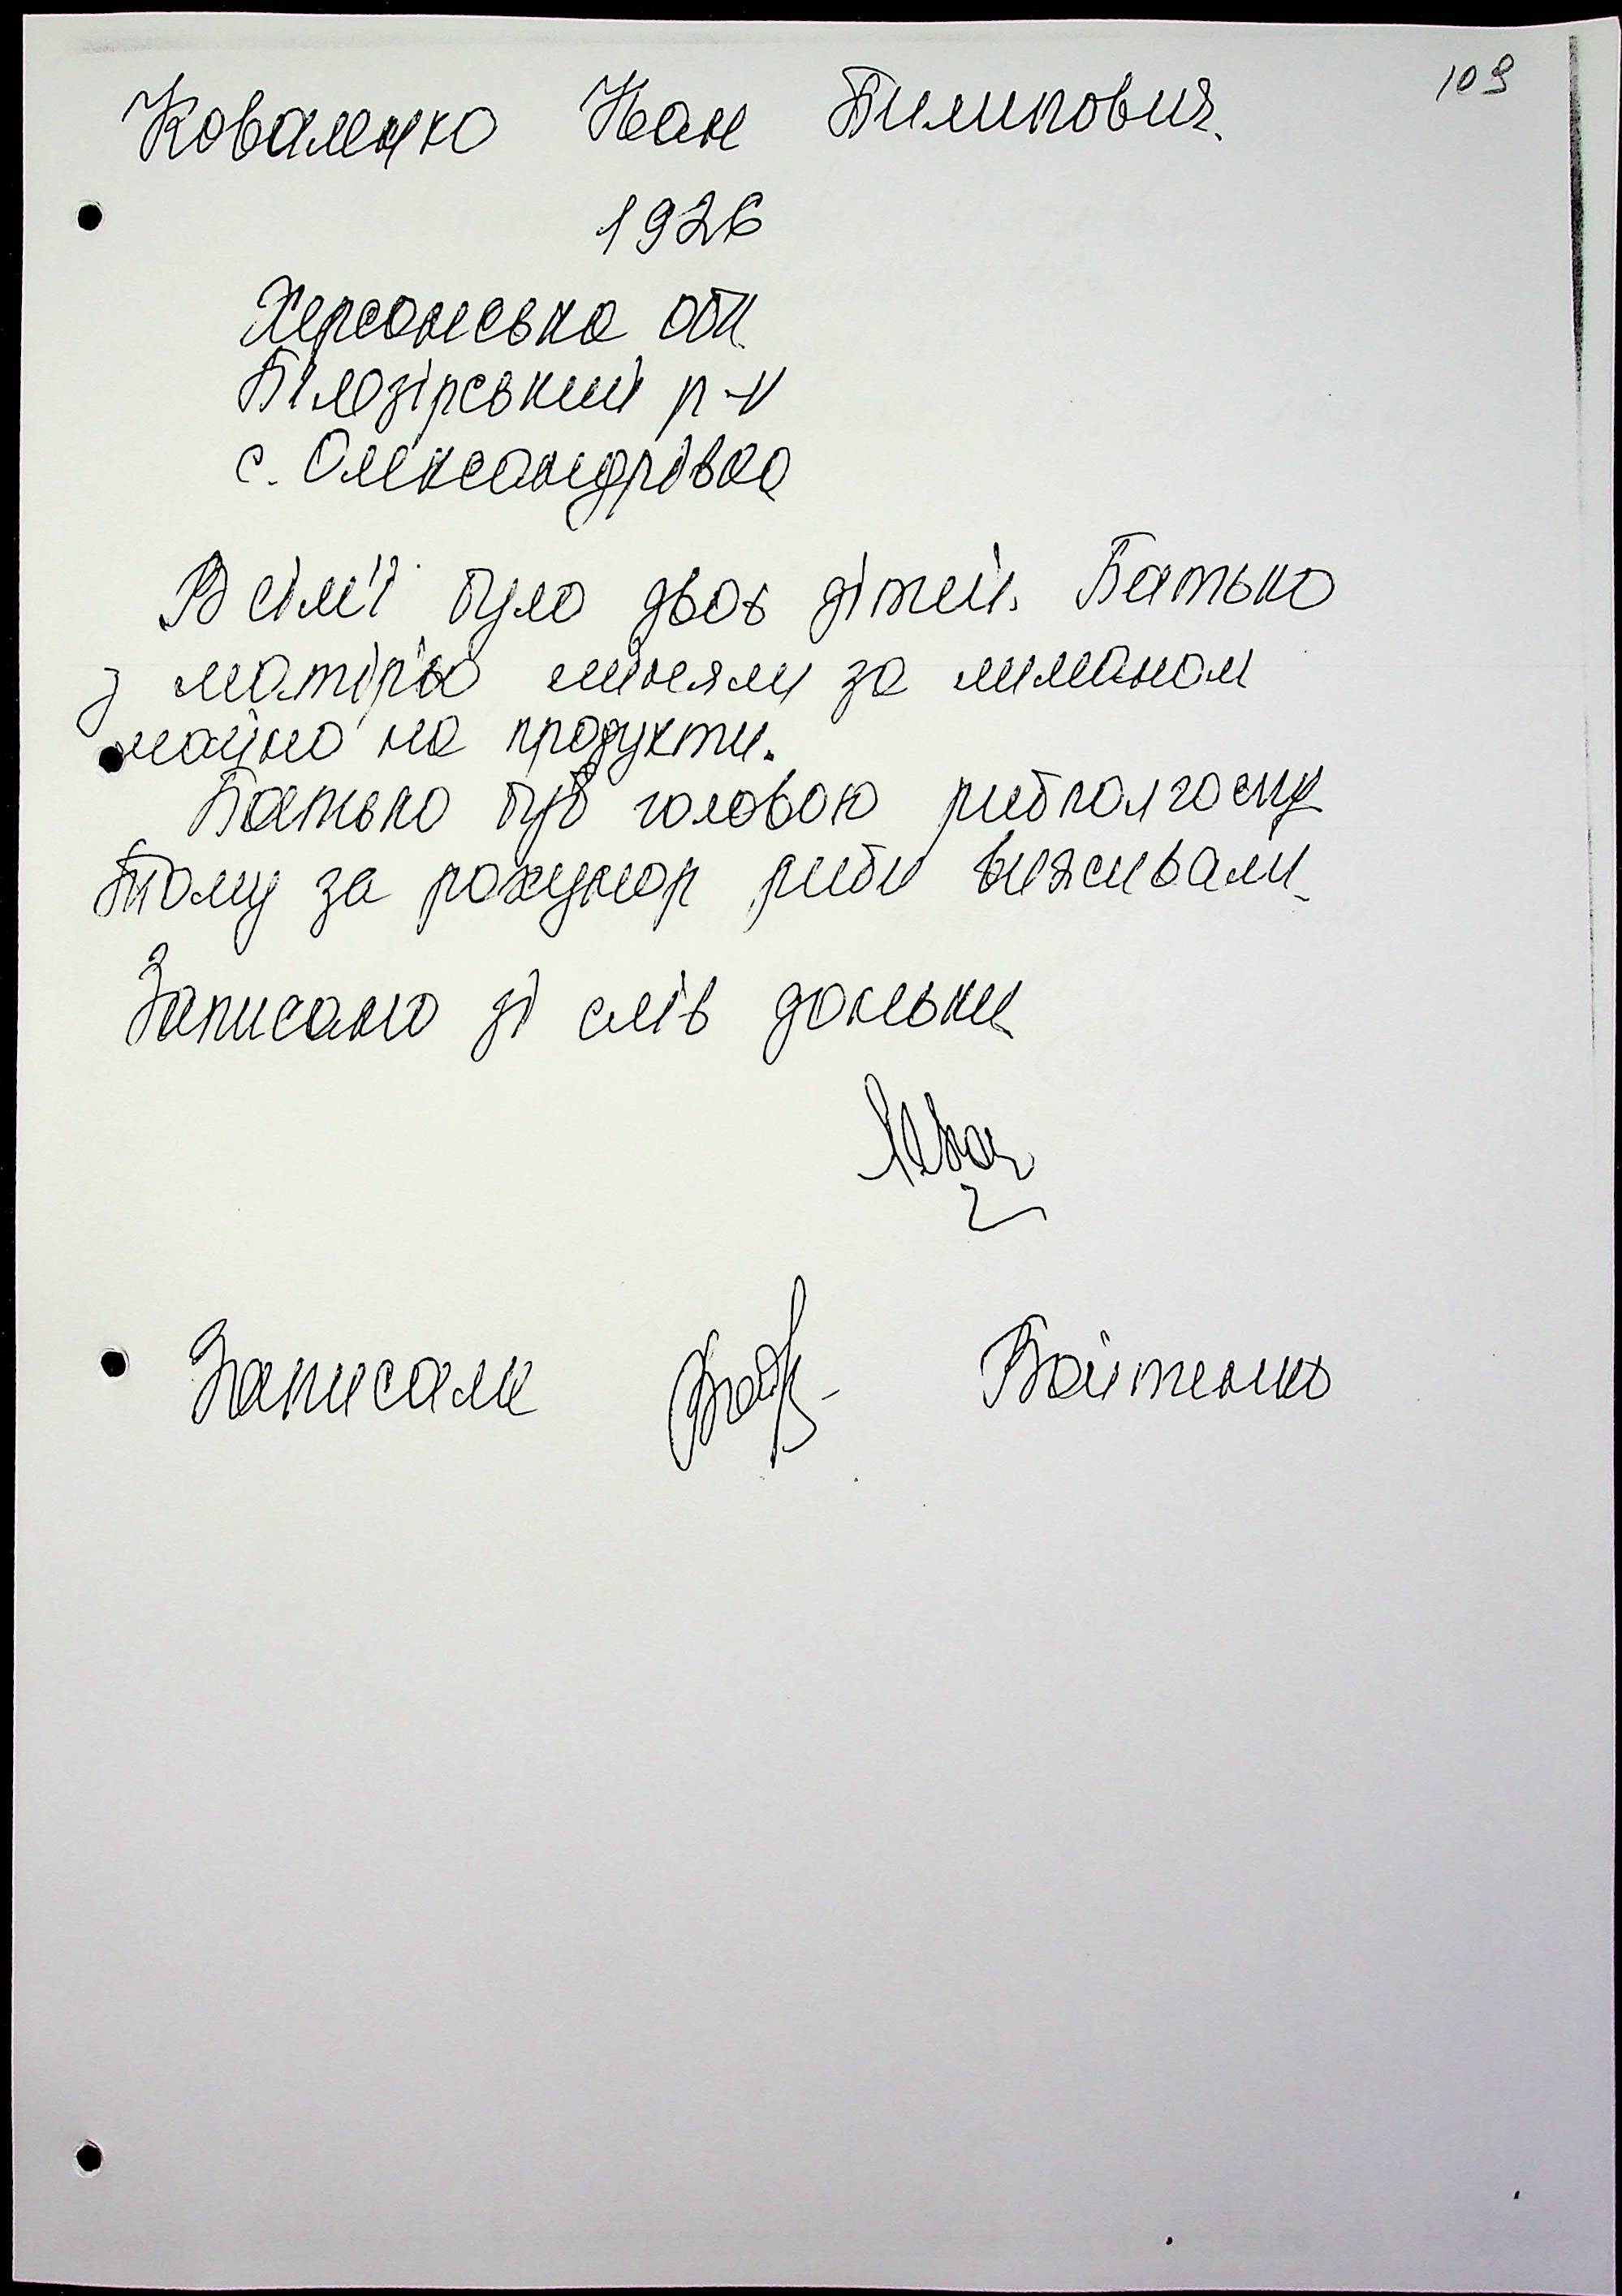 109
Коваленко Іван Пилипович.
1926
Херсонська обл.
Білозірський р-н
с. Олександрівка
В сім'ї було двох дітей. Батько
з матір'ю міняли за лиманом
майно на продукти.
Батько був головою рибколгоспу
Тому за рахунок риби виживали.
Записано зі слів доньки
Записали Войтенко